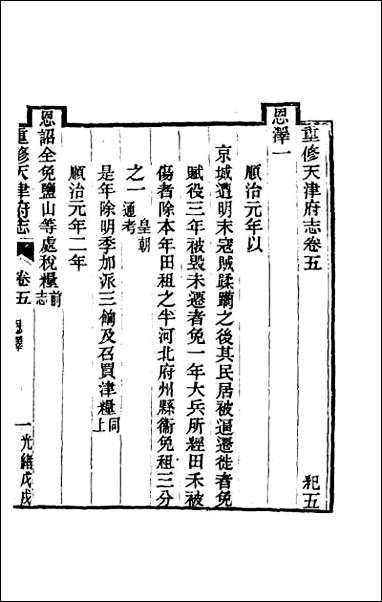 重修天津府志卷五　紀五
恩澤一
順治元年以
京城遭明末寇賊蹂躪之後其民居被逼遷徙者免
賦役三年被毀未遷者免一年大兵所經田禾被
傷者除本年田租之半河北府州縣衞免租三分
之一皇朝通考
是年除明季加派三餉及召買津糧同上
順治元年二年
恩詔全免鹽山等處稅糧前志
重修天津府志　卷五　恩澤　一　光緒戊戌